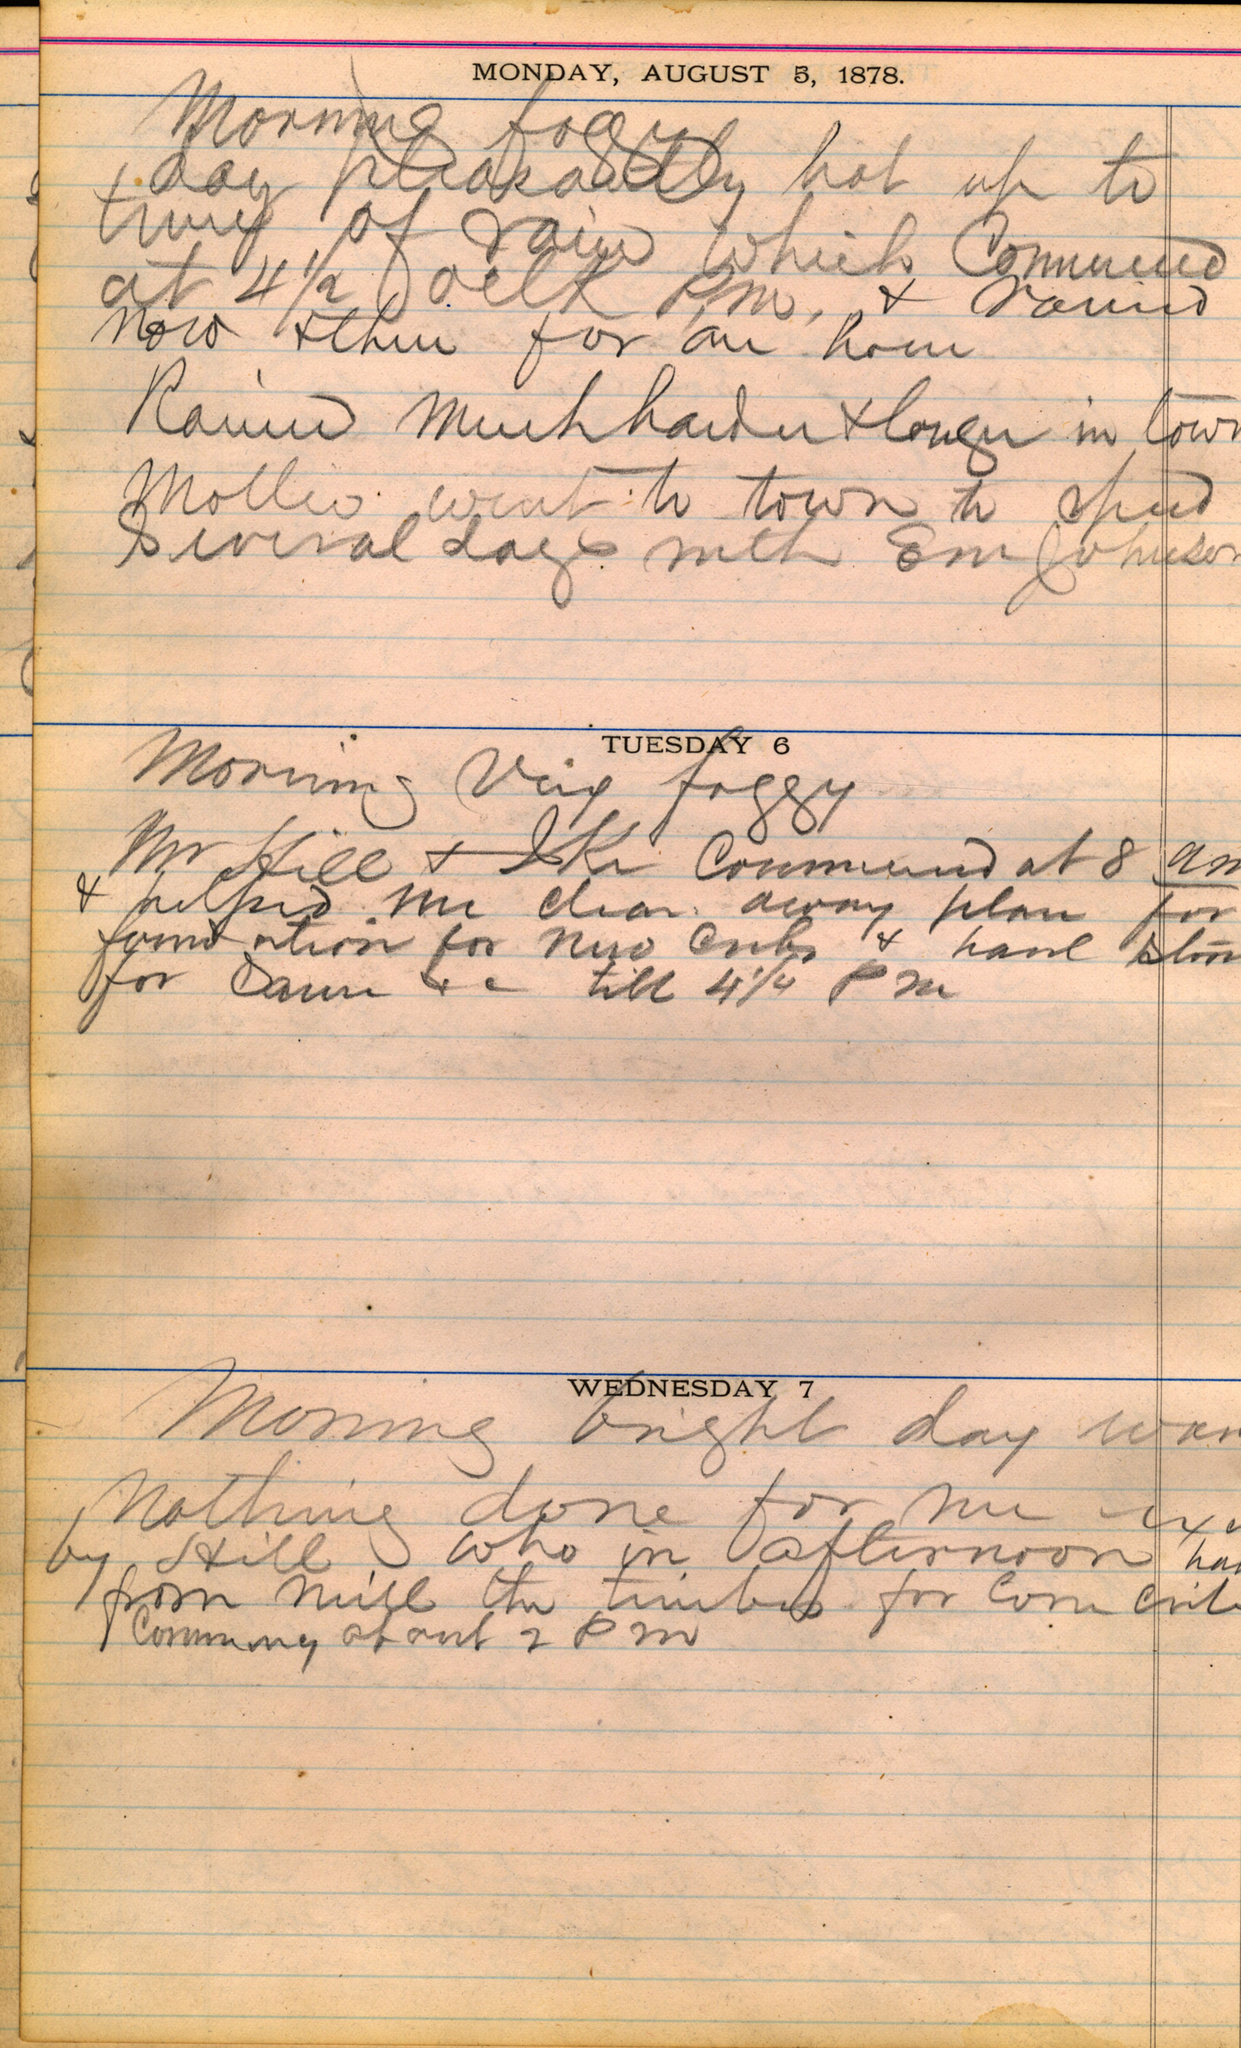 MONDAY, AUGUST 5, 1878.
Morning foggy
day pleasantly hot up to
time of rain which Commened
at 4 1/2 oclk P.M. & rained
now & then for an hour
Rained much harder & longer in town
Mollie went to town to spend
Several days with Em Johnson
TUESDAY 6
Morning Very foggy
Mr Hill & Ike Commened at 8 am
& helped me clear away plan for
foundation for new Cribs & haul
for Same &c till 4 1/4 P M
WEDNESDAY 7
Morning bright day
Nothing done for me
by Hill who in afternoon
from mill the timber for Corn
about 2 P M